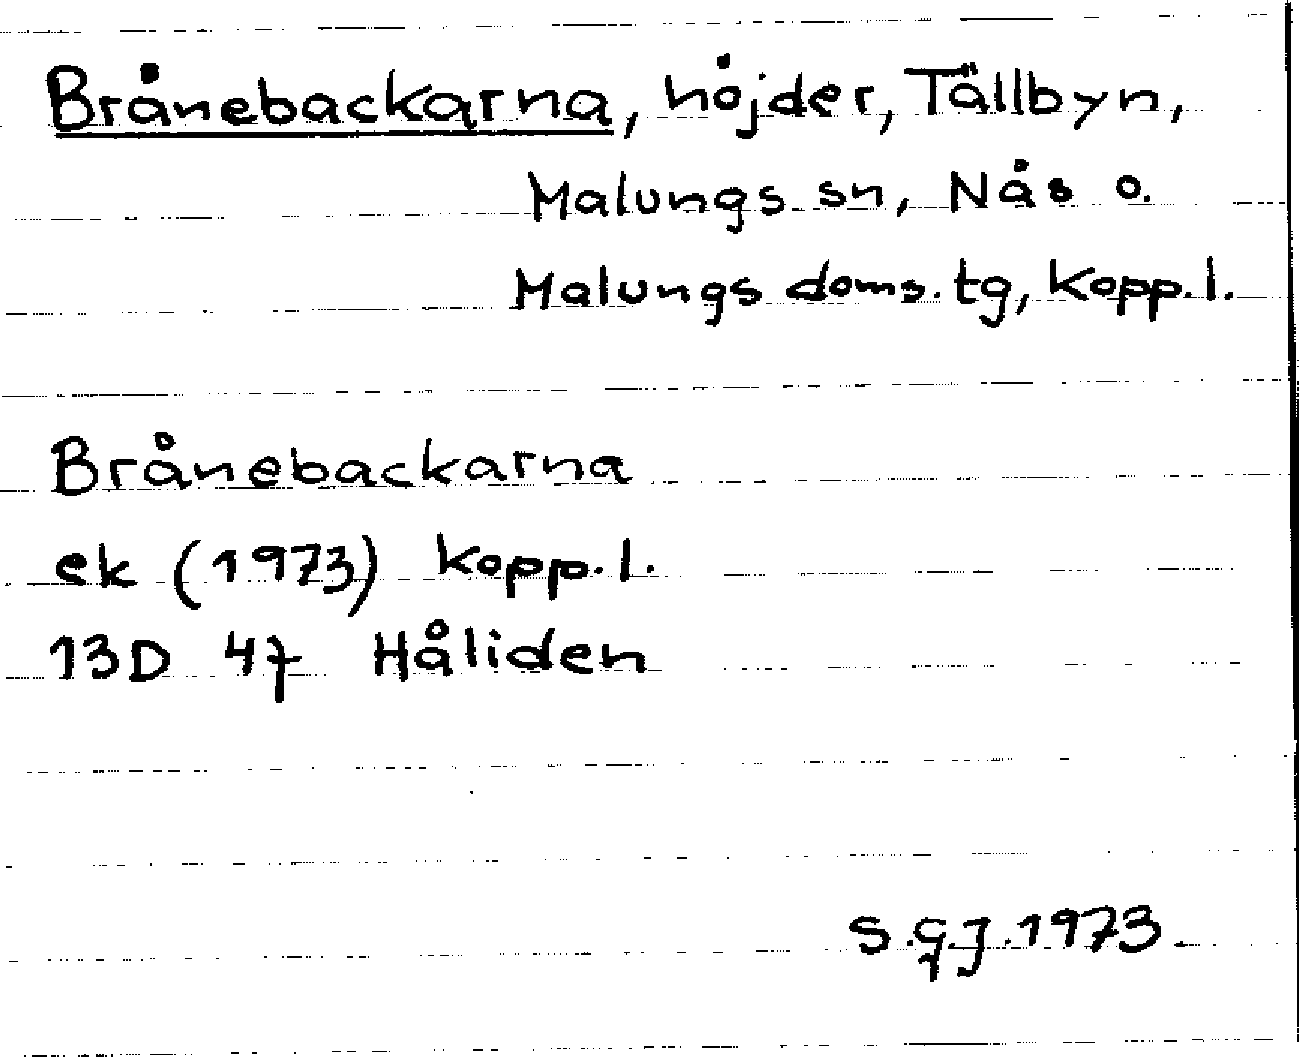 Brånebackarna, höjder, Tällbyn,
Malungs sn, Nås o.
Malungs doms. tg, Kopp. l.
Brånebackarna
ek (1973) Kopp. l.
13D 4f Håliden
S.G.J. 1973